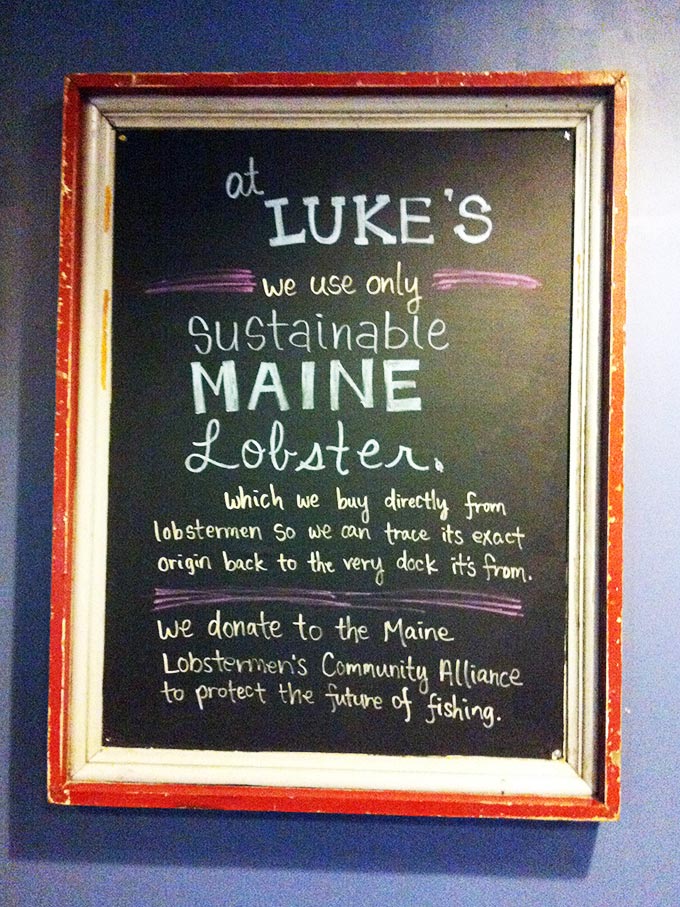 at
LUKE'S
we use only
sustainable
MAINE
Lobster.
which we buy directly from
lobstermen so we can trace its exact
origin back to the very dock it's from.
we donate to the Maine
Lobstermen's Community Alliance
to protect the future of fishing.